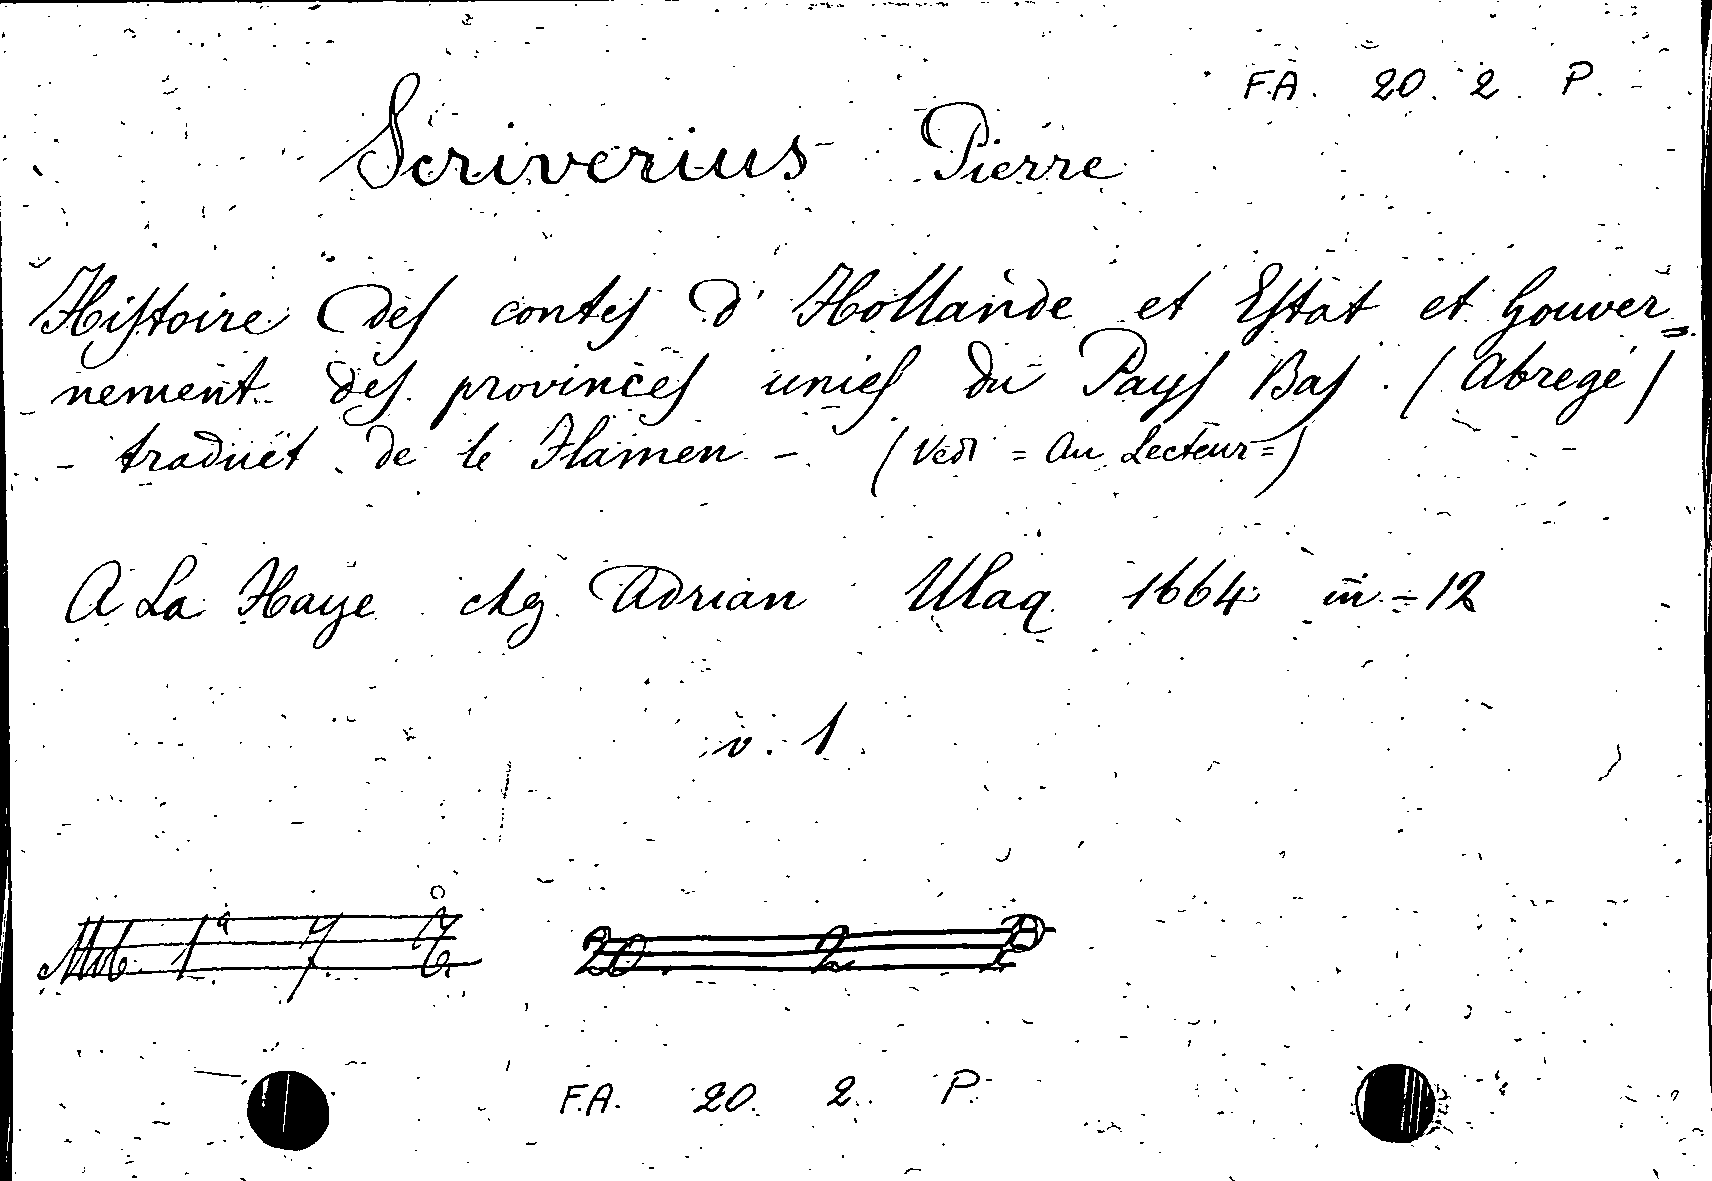 F.A. 20. 2. P.
Scriverius Pierre
Histoire des contes d' Hollande et Estat et Gouver=
nement des provinces unies du Pays Bas. (Abregé)
- traduët de le Flamen - (Vedi = Au Lecteur =)
A La Haye chez Adrian Ulaq 1664 in-12
v. 1
20. 2. P
F.A. 20. 2. P.